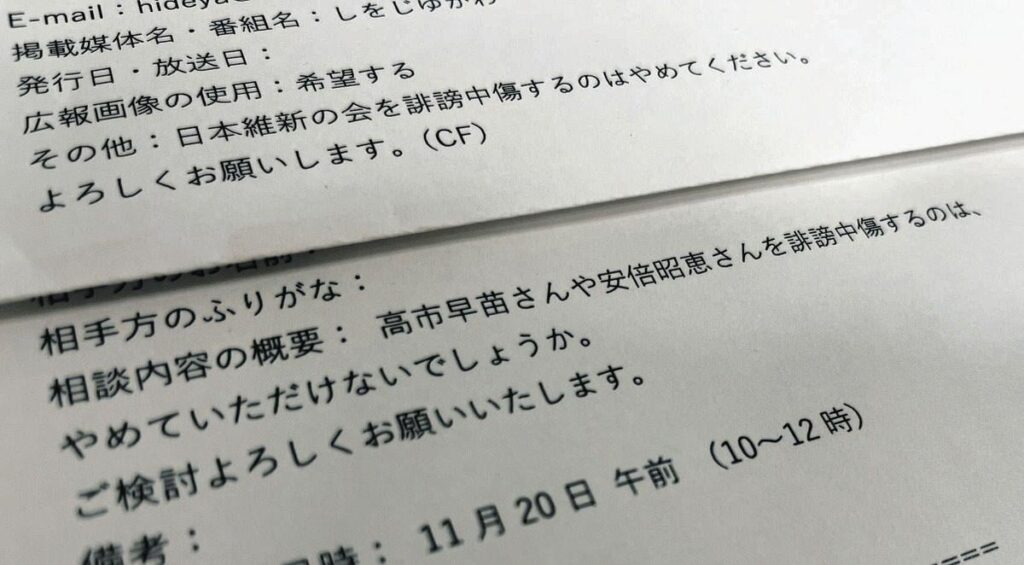 E-mail : hideya
掲載媒体名・番組名：しをじゆがわ
発行日・放送日：
広報画像の使用：希望する
その他：日本維新の会を誹謗中傷するのはやめてください。
よろしくお願いします。（CF）
相手方のお名前：
相手方のふりがな：
相談内容の概要： 高市早苗さんや安倍昭恵さんを誹謗中傷するのは、
やめていただけないでしょうか。
ご検討よろしくお願いいたします。
備考：
時： 11月20日 午前 （10～12時）
====